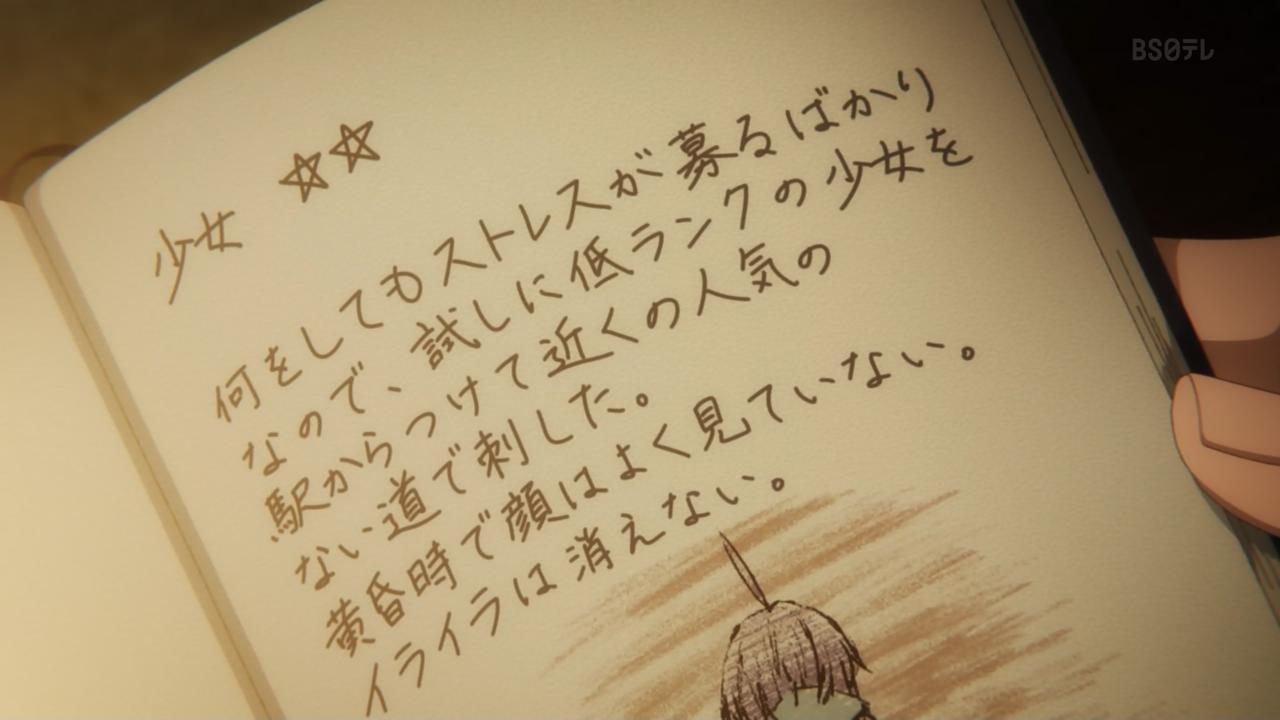 BS日テレ
少女 ☆☆
何をしてもストレスが募るばかり
なので、試しに低ランクの少女を
駅からつけて近くの人気の
ない道で刺した。
黄昏時で顔はよく見ていない。
イライラは消えない。